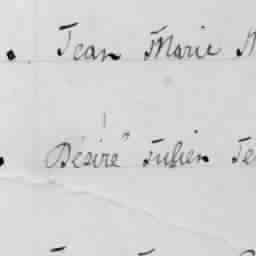 Jean Marie
Désiré" Julien